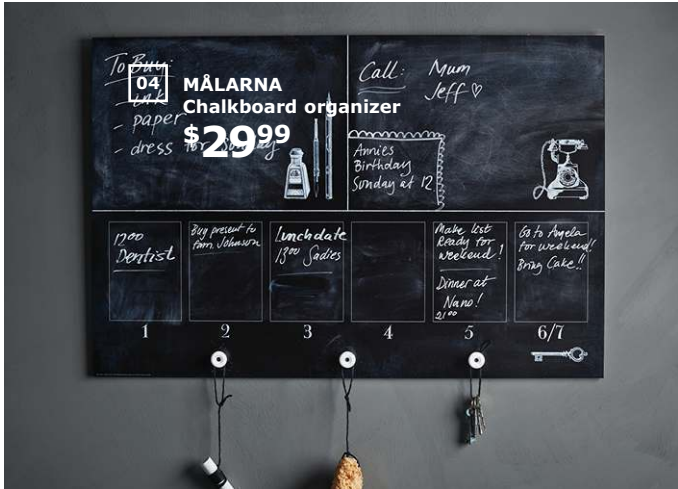 To Buy:
- ink
- paper
- dress for Sunday
04
MÅLARNA
Chalkboard organizer
$29.99
Call: Mum
Jeff ♡
Annies
Birthday
Sunday at 12
12.00
Dentist
Buy present to
fam. Johnson
Lunchdate
13.00 Sadies
Make list
Ready for
weekend!
Dinner at
Nano!
21.00
Go to Angela
for weekend!!
Bring Cake!!
1
2
3
4
5
6/7